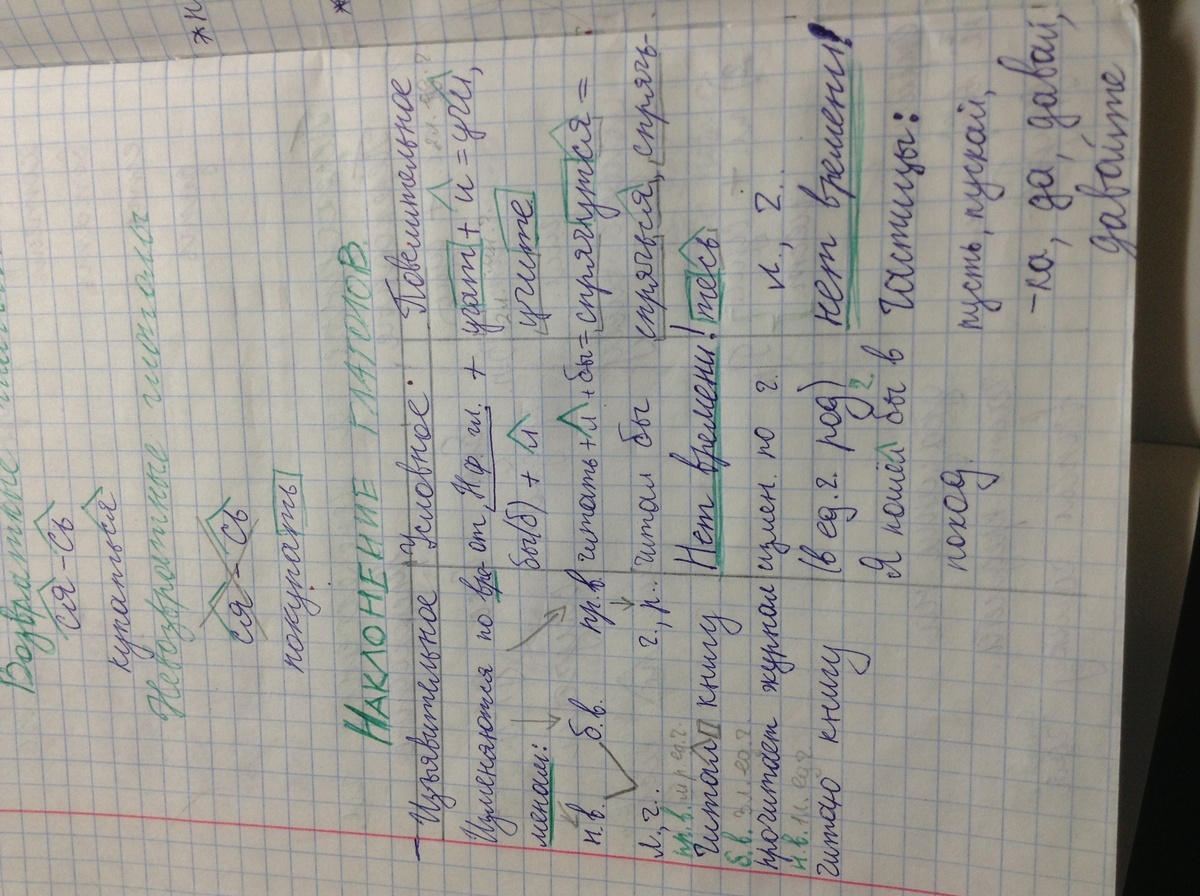 Возвратные
ся-сь
купаться
Невозвратные глаголы
ся-сь
покупать
НАКЛОНЕНИЕ ГЛАГОЛОВ
Изъявительное
Изменяются по вре-
менам:
н.в. б.в. пр.в.
л., ч.. ч., р..
пр.в. м р ед.ч.
Читал книгу
б.в. 3 л. ед.ч.
прочитает журнал
н.в. 1 л. ед.ч.
читаю книгу
Условное.
от Н.ф. гл. +
бы(б) + л
читать+л+бы=
читал бы
Нет времени!
измен. по ч.
(в ед.ч. род)
Я пошёл бы в
поход.
Повелительное
учат + и = учи,
учите
спрячутся =
спрячься, спрячь-
тесь
л., ч..
нет времени!
Частицы:
пусть, пускай,
-ка, да, давай,
давайте